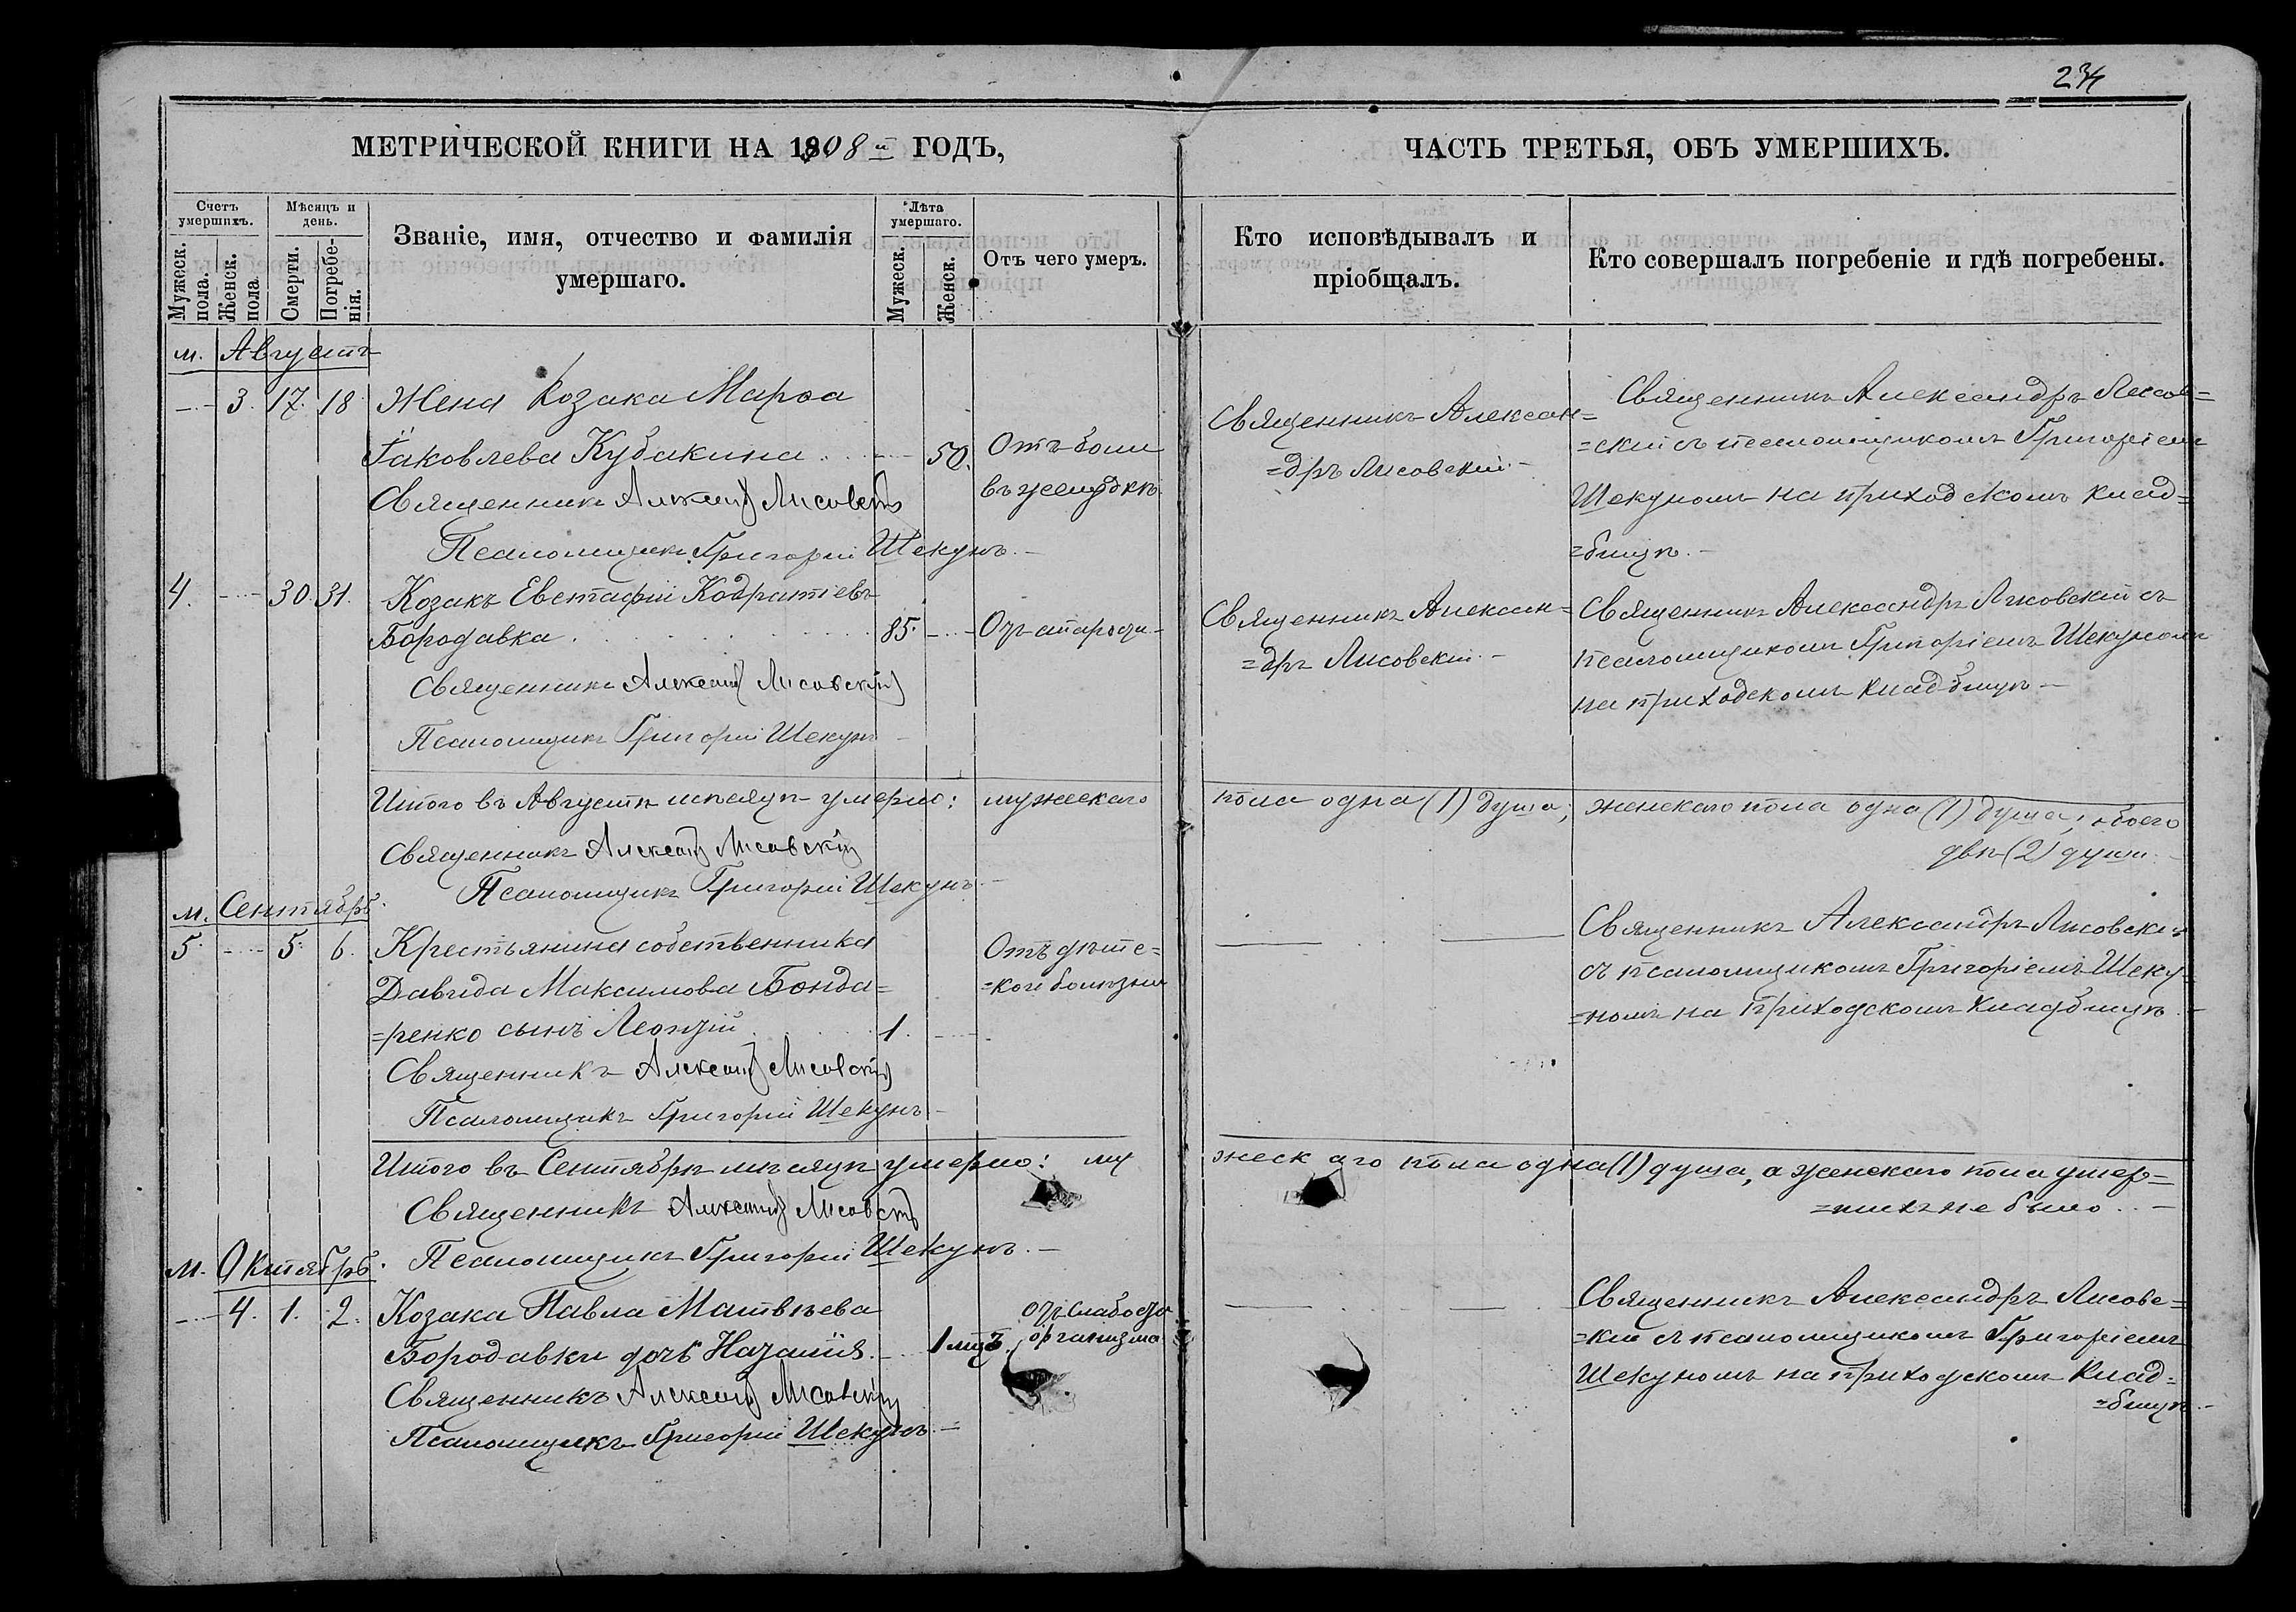 234
МЕТРИЧЕСКОЙ КНИГИ НА 1908й ГОДЪ,
ЧАСТЬ ТРЕТЬЯ, ОБЪ УМЕРШИХЪ.
Счетъ умершихъ.
Мужеск. пола.
Женск. пола.
Мѣсяцъ и день.
Смерти.
Погребе-
нія.
Званіе, имя, отчество и фамилія
умершаго.
Лѣта
умершаго.
Мужеск.
Женск.
Отъ чего умеръ.
Кто исповѣдывалъ и
пріобщалъ.
Кто совершалъ погребеніе и гдѣ погребены.
м. Августъ
3. 17. 18 Жена Козака Марѳа
Іаковлева Кубакина 50.
Отъ боли
въ желудкѣ.
Священникъ Алексан=
=дръ Лисовскій
Священникъ Александръ Лисов=
=скій съ псаломщикомъ Григоріемъ
Шекуномъ на приходскомъ клад=
=бищѣ.
Священникъ Александръ Лисовскій
Псаломщикъ Григорій Шекунъ.
4. 30. 31. Козакъ Евстафій Кодратіевъ
Бородавка 85. Отъ старости
Священникъ Алексан=
=дръ Лисовскій
Священникъ Александръ Лисовскій съ
псаломщикомъ Григоріемъ Шекуномъ
на приходскомъ кладбищѣ
Священникъ Александръ Лисовскій
Псаломщикъ Григорій Шекунъ
Итого въ Августѣ мѣсяцѣ умерло: мужескаго пола одна (1) душа, женскаго пола одна (1) душа, обоего
двѣ (2) души.
Священникъ Александръ Лисовскій
Псаломщикъ Григорій Шекунъ.
м. Сентябрь.
5. 5. 6. Крестьянина собственника
Давида Максимова Бонда=
=ренко сынъ Леонтій 1.
Отъ дѣтс=
=кой болѣзни
Священникъ Александръ Лисовскій
съ псаломщикомъ Григоріемъ Шеку=
=номъ на приходскомъ кладбищѣ.
Священникъ Александръ Лисовскій
Псаломщикъ Григорій Шекунъ
Итого въ Сентябрѣ мѣсяцѣ умерло: мужескаго пола одна (1) душа, а женскаго пола умер=
=шихъ не было.
Священникъ Александръ Лисовскій
Псаломщикъ Григорій Шекунъ.
м. Октябрь.
4. 1. 2. Козака Павла Матвѣева
Бородавки дочь Наталія. 1 мц.
Отъ слабости
организма
Священникъ Александръ Лисовс=
=кій съ псаломщикомъ Григоріемъ
Шекуномъ на приходскомъ клад=
=бищѣ.
Священникъ Александръ Лисовскій
Псаломщикъ Григорій Шекунъ.